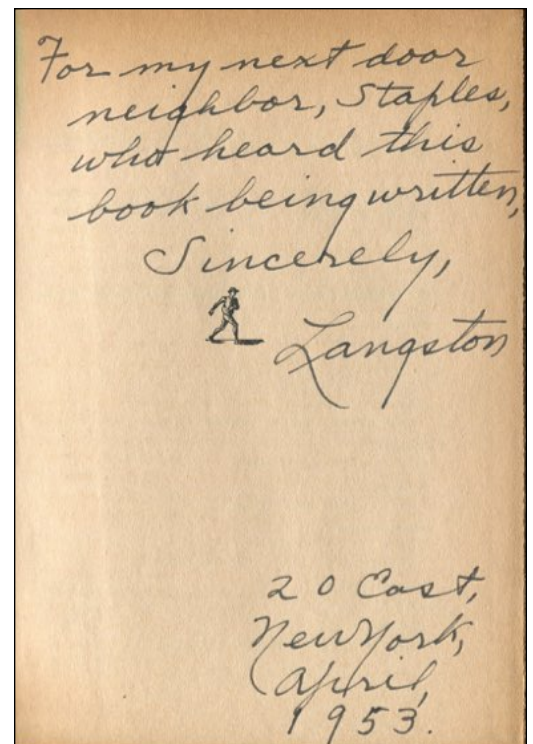 For my next door
neighbor, Staples,
who heard this
book being written,
Sincerely,
Langston
20 East,
New York,
April,
1953.